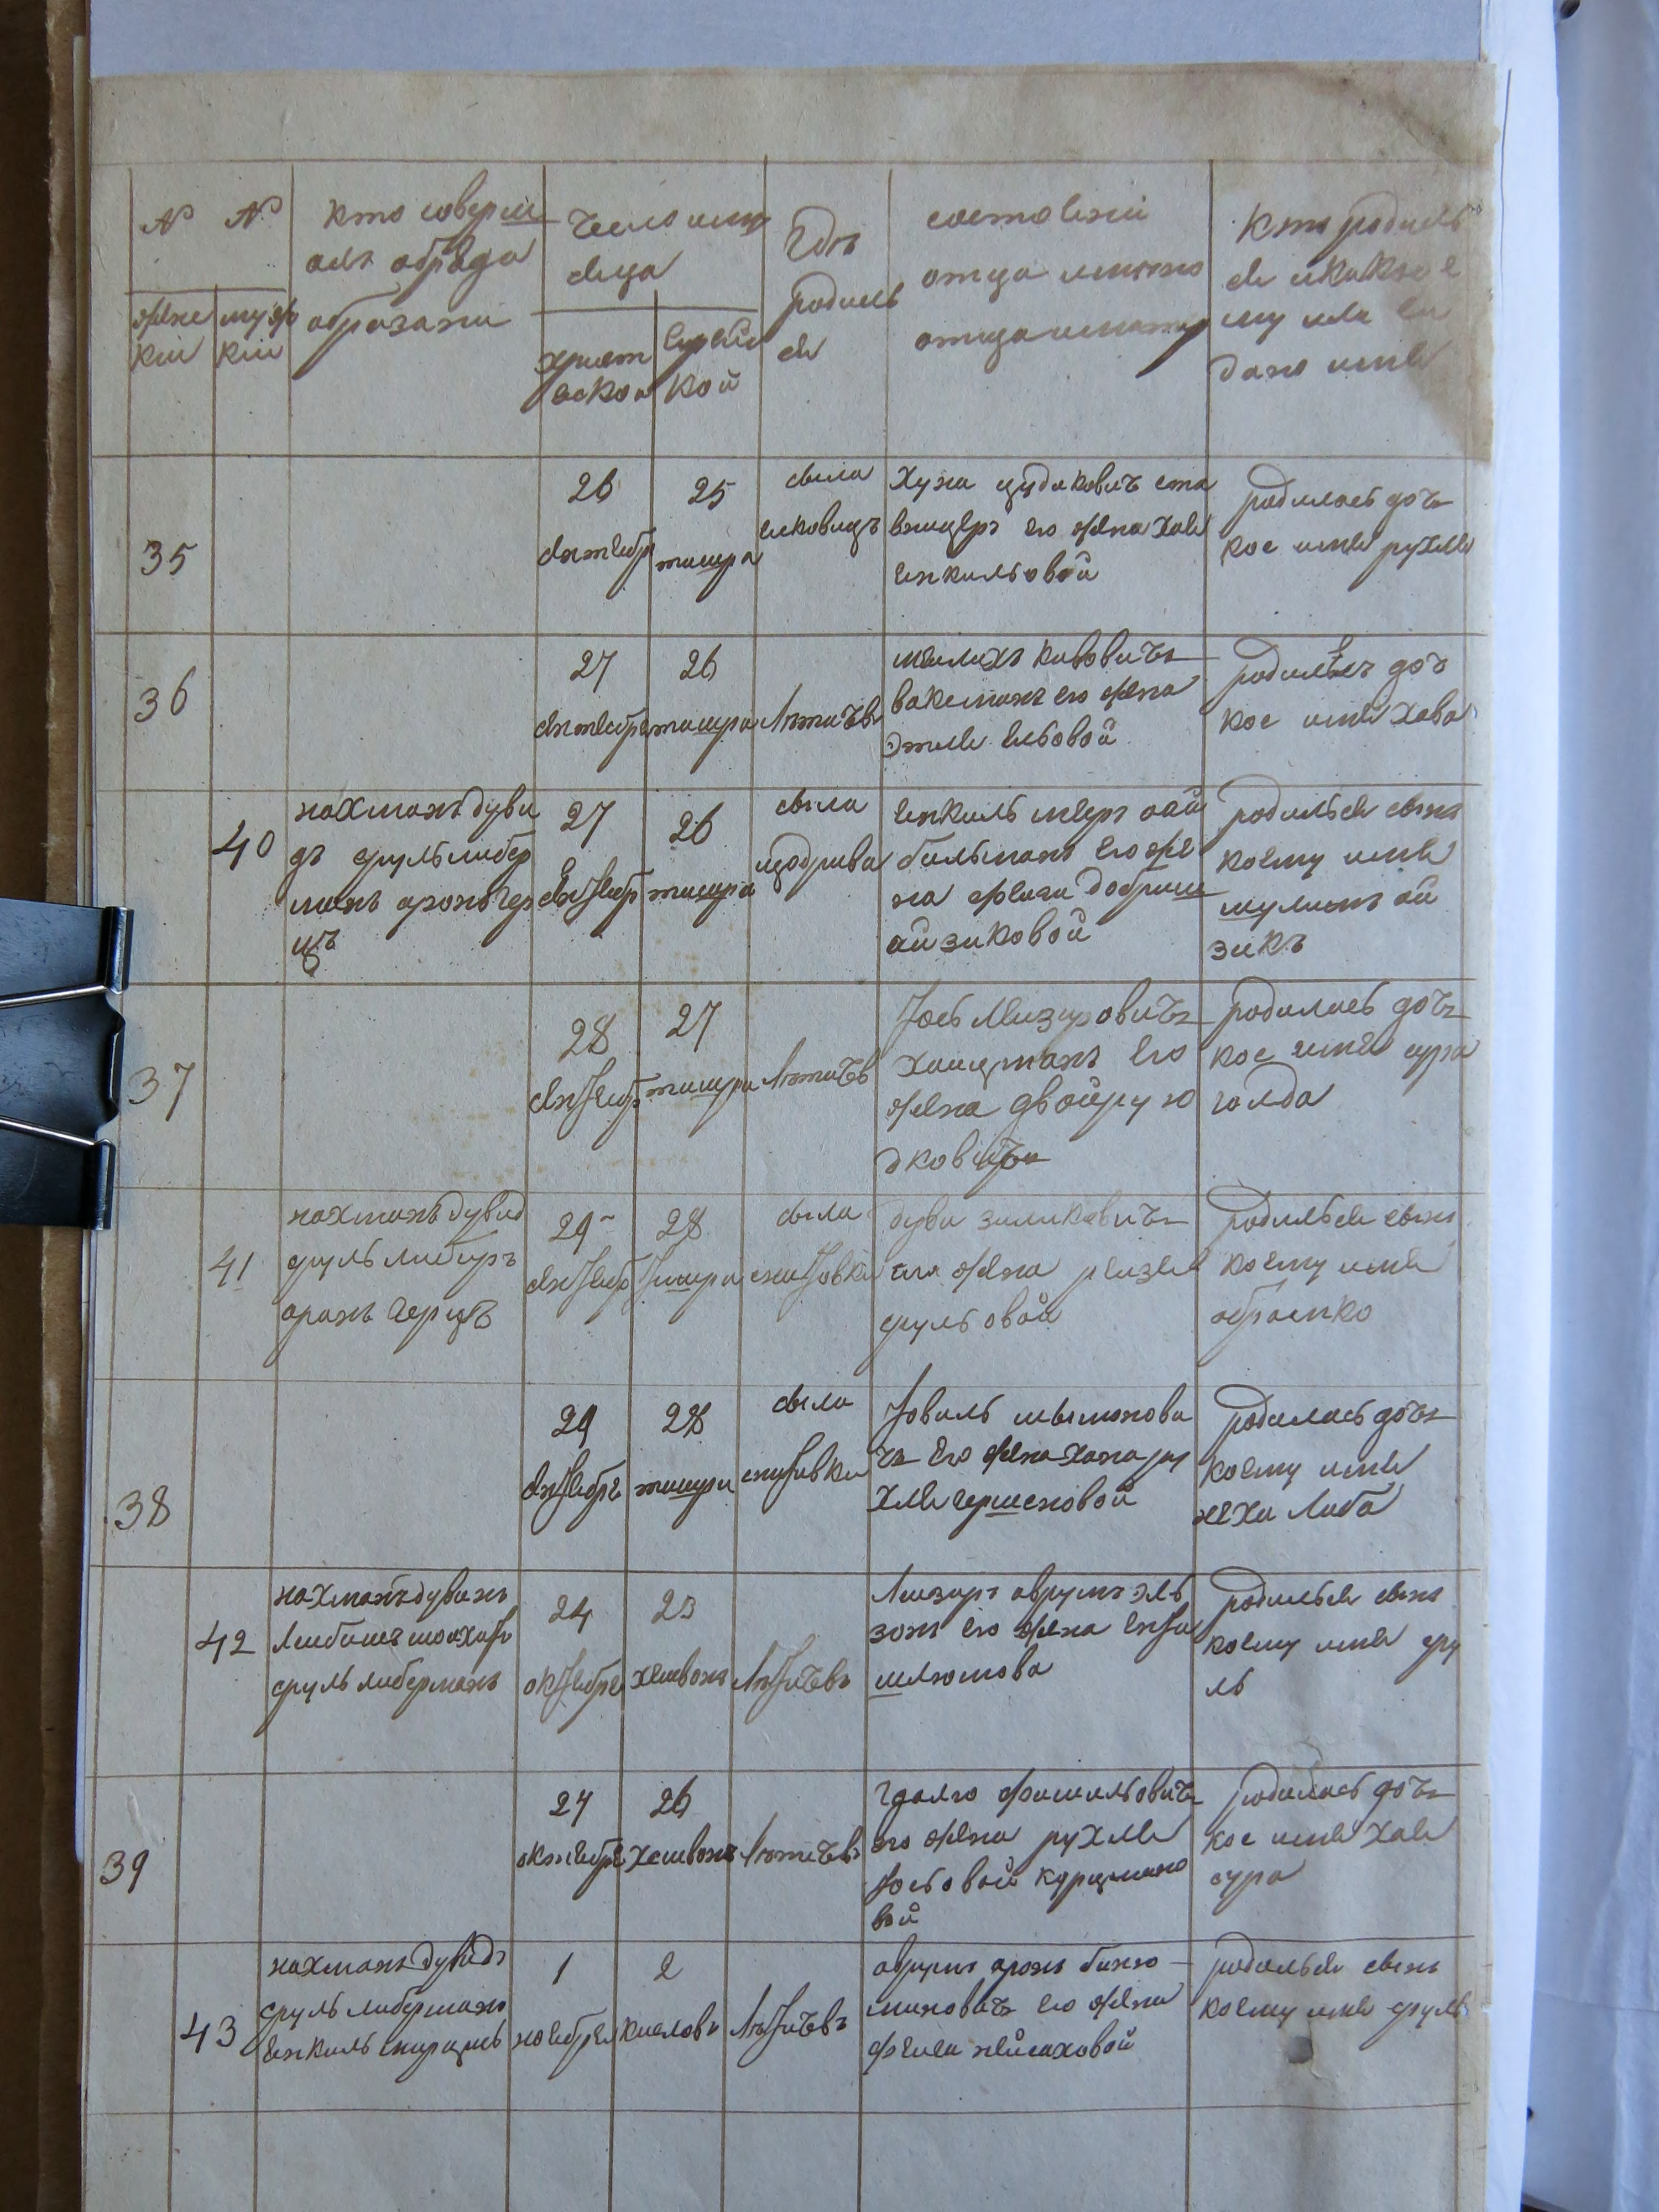 № №
жене
кiи
муж
кiи
кто соверш
алъ обряда
обрезани
число ими
сяца
христ
еской
еврей
кой
где
родилъ
ся
состоянiи
отца имято
отца иматер
кто родилъ
ся икакое
му или ей
дано имя
35
26
сентебр
25
тишра
сыла
Хуна цудиковичъ ста
внщеръ его жена Хая
енкильовой
родилась доч
кое имя рухля
36
27
сентебре
26
тишра
Лятичв
мелихъ
ваксманъ его жена
этля ельовой
доч
кое имя Хава
40
нахманъ дуви
дъ сруль либер
манъ аронъ гер
цъ
27
сентебр
26
тишра
сыла
енкиль меер оай
бильманъ его же
на фейга добриш
айзиковой
родилься сынъ
коему имя
шулимъ ай
зикъ
37
28
сентебр
27
тишра
Лятичв
Iось Лизуровичъ
его
жена двойру ю
дковичъ
родилась дочъ
кое имя сура
голда
41
нахманъ дувид
сруль либеръ
аронъ герцъ
29
сентебр
28
тишри
сыла
снитовки
дуви зиликовичъ
его жена рейзя
срульовой
родилься сынъ
коему имя
абрамко
38
29
сентебрь
28
тишри
сыла
снитовки
Iовиль шымонови
чъ его жена хана ру
хля гершеновой
родилась дочъ
коему имя
неха Либа
42
нахманъ дувинъ
сруль либерманъ
24
октебре
23
хешвонъ
Лятичевъ
Лизуръ аврумъ эль
зонъ его жена ента
шлюмова
родилься сынъ
коему имя сру
ль
39
27
октебре
26
Хешвонъ
Лятичевъ
Гдалю фишильовичъ
его жена рухля
Iосьовой курцмано
вой
родилась дочъ
кое имя Хая
сура
43
нахманъ дувидъ
сруль либерманъ
енкиль
1
ноебрея
2
кислови
Лятичевъ
аврумъ аронъ биню
миновичъ его жена
фейга пейсаховой
родилься сынъ
коему имя сруль